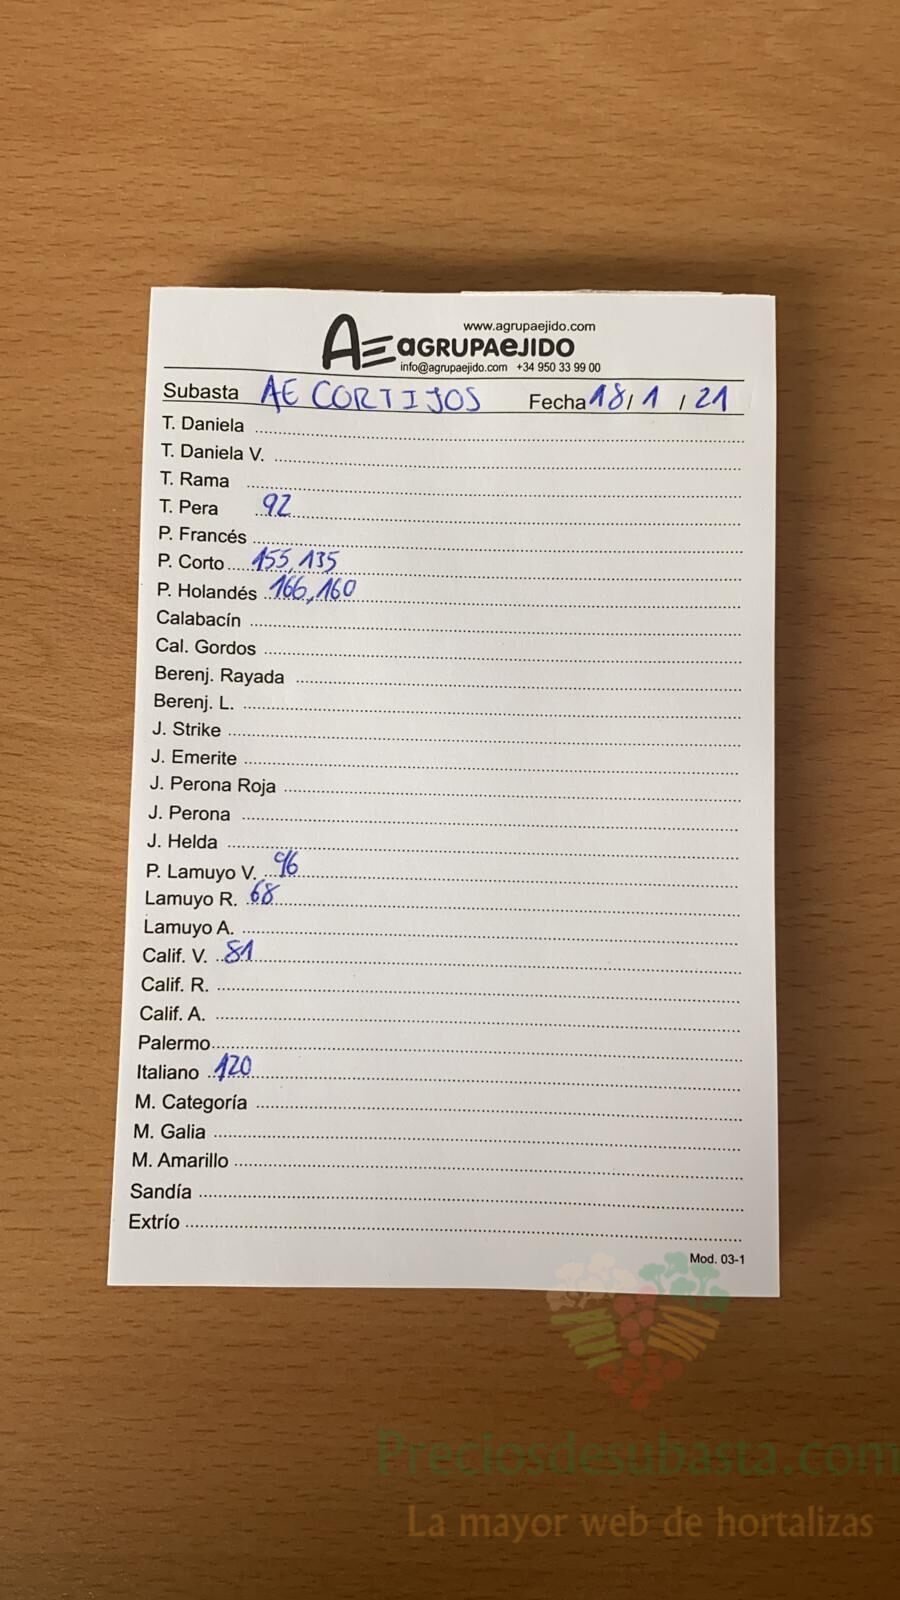 www.agrupaejido.com
AE aGRUPAeJIDO
info@agrupaejido.com +34 950 33 99 00
Subasta AE CORTIJOS Fecha 18/ 1 / 21
T. Daniela
T. Daniela V.
T. Rama
T. Pera 92
P. Francés
P. Corto 155, 135
P. Holandés 166, 160
Calabacín
Cal. Gordos
Berenj. Rayada
Berenj. L.
J. Strike
J. Emerite
J. Perona Roja
J. Perona
J. Helda
P. Lamuyo V. 96
Lamuyo R. 68
Lamuyo A.
Calif. V. 81
Calif. R.
Calif. A.
Palermo
Italiano 120
M. Categoría
M. Galia
M. Amarillo
Sandía
Extrío
Mod. 03-1
Preciosdesubasta.com
La mayor web de hortalizas